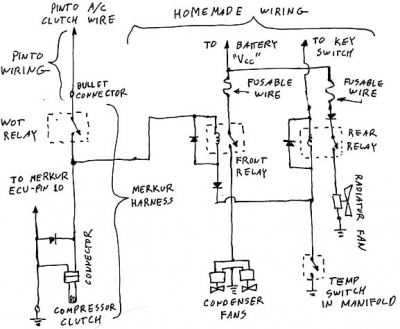 PINTO A/C
CLUTCH WIRE
HOMEMADE WIRING
PINTO
WIRING
TO BATTERY
"VCC"
TO KEY
SWITCH
BULLET
CONNECTOR
FUSABLE
WIRE
FUSABLE
WIRE
WOT
RELAY
FRONT
RELAY
REAR
RELAY
TO MERKUR
ECU-PIN 10
MERKUR
HARNESS
RADIATOR
FAN
CONNECTOR
COMPRESSOR
CLUTCH
CONDENSER
FANS
TEMP
SWITCH
IN MANIFOLD